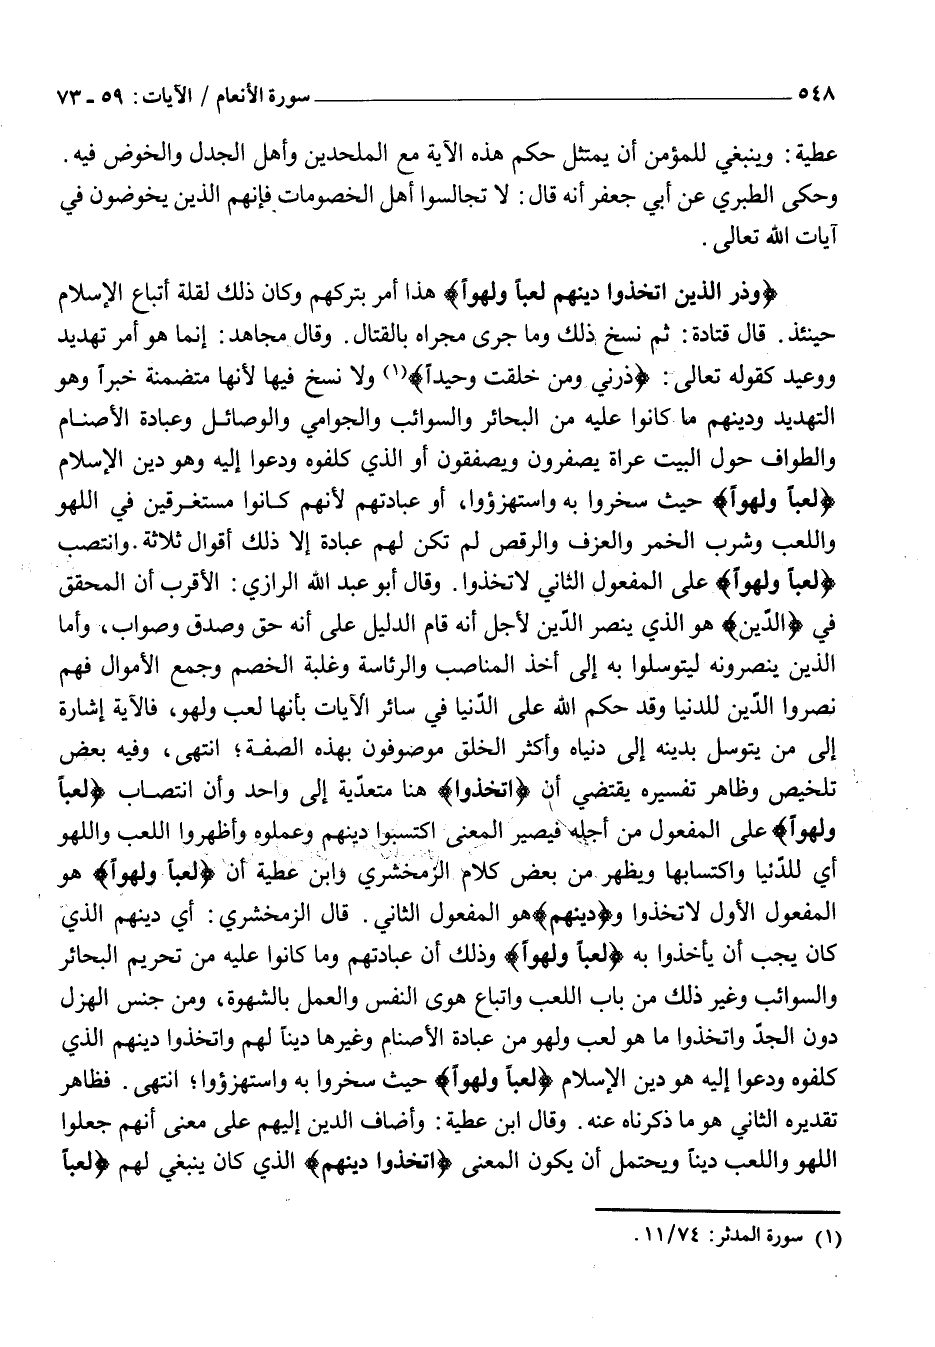 ٥٤٨ ــــــــ سورة الأنعام / الآيات: ٥٩ ـ ٧٣
عطية: وينبغي للمؤمن أن يمتثل حكم هذه الآية مع الملحدين وأهل الجدل والخوض فيه.
وحكى الطبري عن أبي جعفر أنه قال: لا تجالسوا أهل الخصومات فإنهم الذين يخوضون في
آيات الله تعالى.
﴿وذر الذين اتخذوا دينهم لعباً ولهواً﴾ هذا أمر بتركهم وكان ذلك لقلة أتباع الإسلام
حينئذ. قال قتادة: ثم نسخ ذلك وما جرى مجراه بالقتال. وقال مجاهد: إنما هو أمر تهديد
ووعيد كقوله تعالى: ﴿ذرني ومن خلقت وحيداً﴾(١) ولا نسخ فيها لأنها متضمنة خبراً وهو
التهديد ودينهم ما كانوا عليه من البحائر والسوائب والجوامي والوصائل وعبادة الأصنام
والطواف حول البيت عراة يصفرون ويصفقون أو الذي كلفوه ودعوا إليه وهو دين الإسلام
﴿لعباً ولهواً﴾ حيث سخروا به واستهزؤوا، أو عبادتهم لأنهم كانوا مستغرقين في اللهو
واللعب وشرب الخمر والعزف والرقص لم تكن لهم عبادة إلا ذلك أقوال ثلاثة. وانتصب
﴿لعباً ولهواً﴾ على المفعول الثاني لاتخذوا. وقال أبو عبد الله الرازي: الأقرب أن المحقق
في ﴿الدّين﴾ هو الذي ينصر الدّين لأجل أنه قام الدليل على أنه حق وصدق وصواب، وأما
الذين ينصرونه ليتوسلوا به إلى أخذ المناصب والرئاسة وغلبة الخصم وجمع الأموال فهم
نصروا الدّين للدنيا وقد حكم الله على الدّنيا في سائر الآيات بأنها لعب ولهو، فالآية إشارة
إلى من يتوسل بدينه إلى دنياه وأكثر الخلق موصوفون بهذه الصفة؛ انتهى، وفيه بعض
تلخيص وظاهر تفسيره يقتضي أن ﴿اتخذوا﴾ هنا متعدّية إلى واحد وأن انتصاب ﴿لعباً
ولهواً﴾ على المفعول من أجله فيصير المعنى اكتسبوا دينهم وعملوه وأظهروا اللعب واللهو
أي للدّنيا واكتسابها ويظهر من بعض كلام الزمخشري وابن عطية أن ﴿لعباً ولهواً﴾ هو
المفعول الأول لاتخذوا و﴿دينهم﴾ هو المفعول الثاني. قال الزمخشري: أي دينهم الذي
كان يجب أن يأخذوا به ﴿لعباً ولهواً﴾ وذلك أن عبادتهم وما كانوا عليه من تحريم البحائر
والسوائب وغير ذلك من باب اللعب واتباع هوى النفس والعمل بالشهوة، ومن جنس الهزل
دون الجدّ واتخذوا ما هو لعب ولهو من عبادة الأصنام وغيرها ديناً لهم واتخذوا دينهم الذي
كلفوه ودعوا إليه هو دين الإسلام ﴿لعباً ولهواً﴾ حيث سخروا به واستهزؤوا؛ انتهى. فظاهر
تقديره الثاني هو ما ذكرناه عنه. وقال ابن عطية: وأضاف الدين إليهم على معنى أنهم جعلوا
اللهو واللعب ديناً ويحتمل أن يكون المعنى ﴿اتخذوا دينهم﴾ الذي كان ينبغي لهم ﴿لعباً
(١) سورة المدثر: ١١/٧٤.